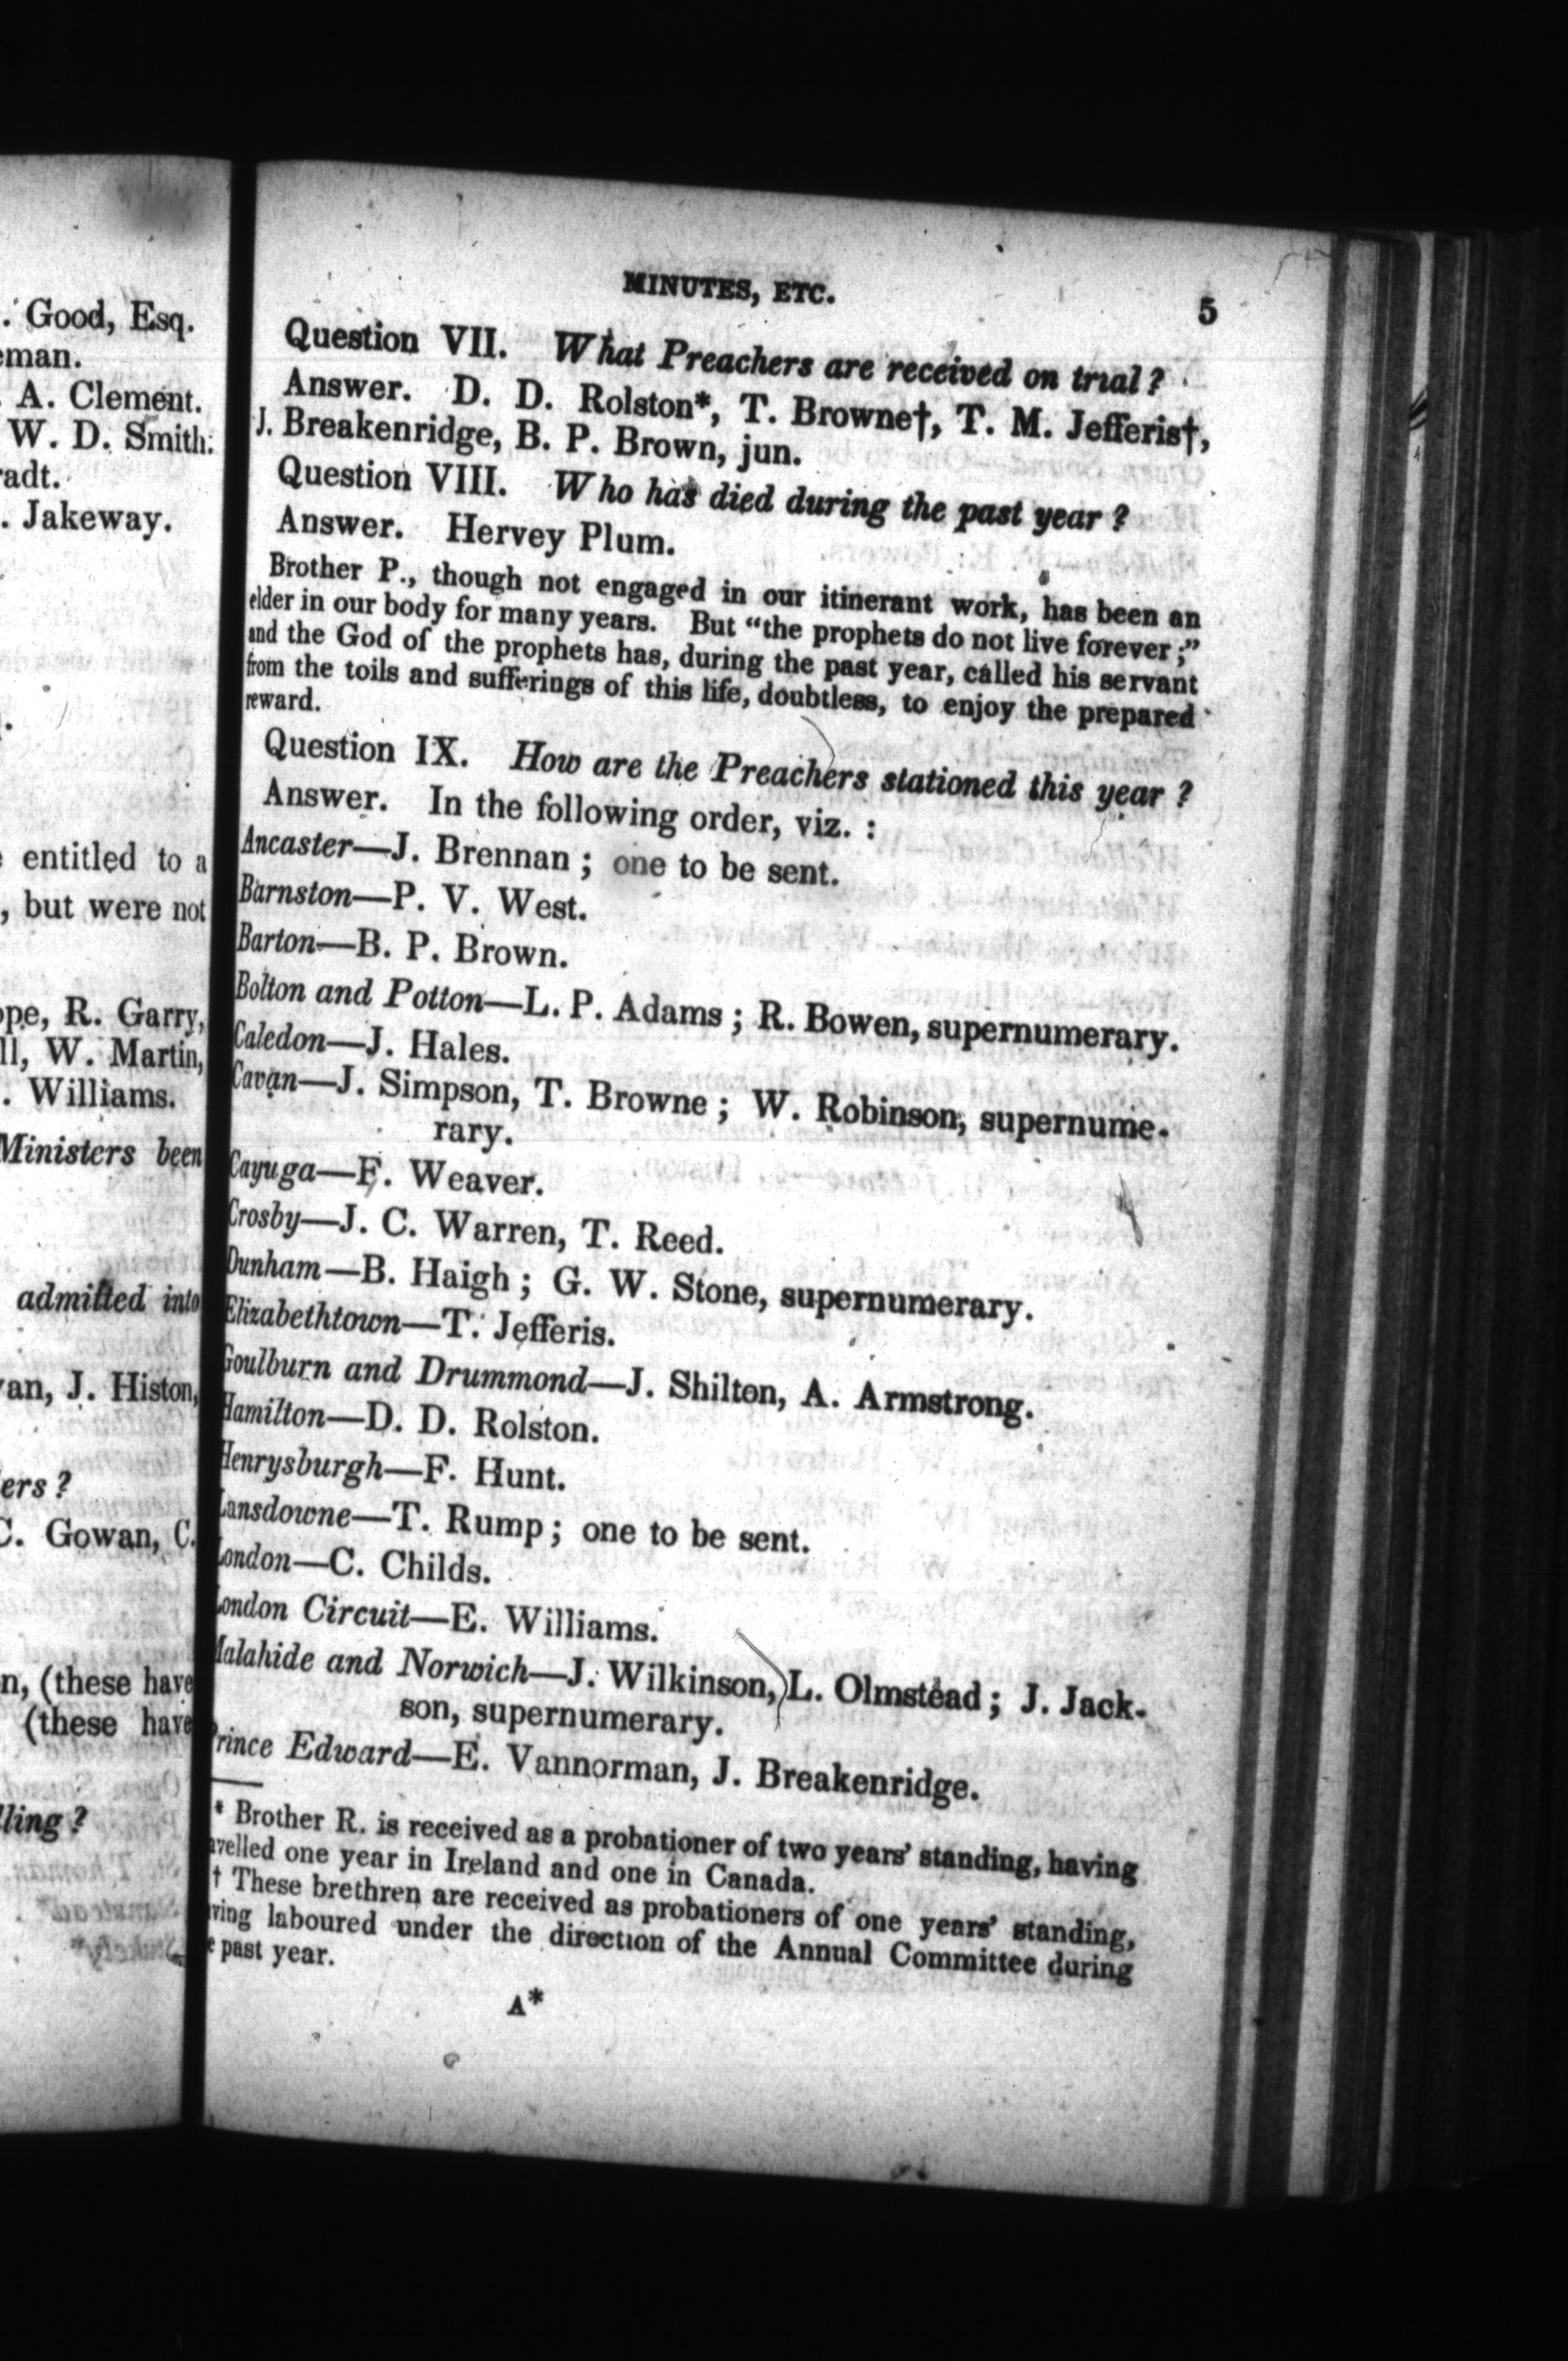 . Good, Esq.
eman.
. A. Clement.
W. D. Smith.
radt.
. Jakeway.
entitled to a
, but were not
ope, R. Garry,
ll, W. Martin,
. Williams.
Ministers been
admitted into
van, J. Histon,
ers?
C. Gowan, C.
n, (these have
(these have
lling?
MINUTES, ETC. 5
Question VII. What Preachers are received on trial?
Answer. D. D. Rolston*, T. Browne†, T. M. Jefferis†,
J. Breakenridge, B. P. Brown, jun.
Question VIII. Who has died during the past year?
Answer. Hervey Plum.
Brother P., though not engaged in our itinerant work, has been an
elder in our body for many years. But "the prophets do not live forever;"
and the God of the prophets has, during the past year, called his servant
from the toils and sufferings of this life, doubtless, to enjoy the prepared
reward.
Question IX. How are the Preachers stationed this year?
Answer. In the following order, viz. :
Ancaster—J. Brennan; one to be sent.
Barnston—P. V. West.
Barton—B. P. Brown.
Bolton and Potton—L. P. Adams; R. Bowen, supernumerary.
Caledon—J. Hales.
Cavan—J. Simpson, T. Browne; W. Robinson, supernume-
rary.
Cayuga—F. Weaver.
Crosby—J. C. Warren, T. Reed.
Dunham—B. Haigh; G. W. Stone, supernumerary.
Elizabethtown—T. Jefferis.
Goulburn and Drummond—J. Shilton, A. Armstrong.
Hamilton—D. D. Rolston.
Henrysburgh—F. Hunt.
Lansdowne—T. Rump; one to be sent.
London—C. Childs.
London Circuit—E. Williams.
Malahide and Norwich—J. Wilkinson, L. Olmstead; J. Jack-
son, supernumerary.
Prince Edward—E. Vannorman, J. Breakenridge.
* Brother R. is received as a probationer of two years' standing, having
avelled one year in Ireland and one in Canada.
† These brethren are received as probationers of one years' standing,
ving laboured under the direction of the Annual Committee during
e past year.
A*